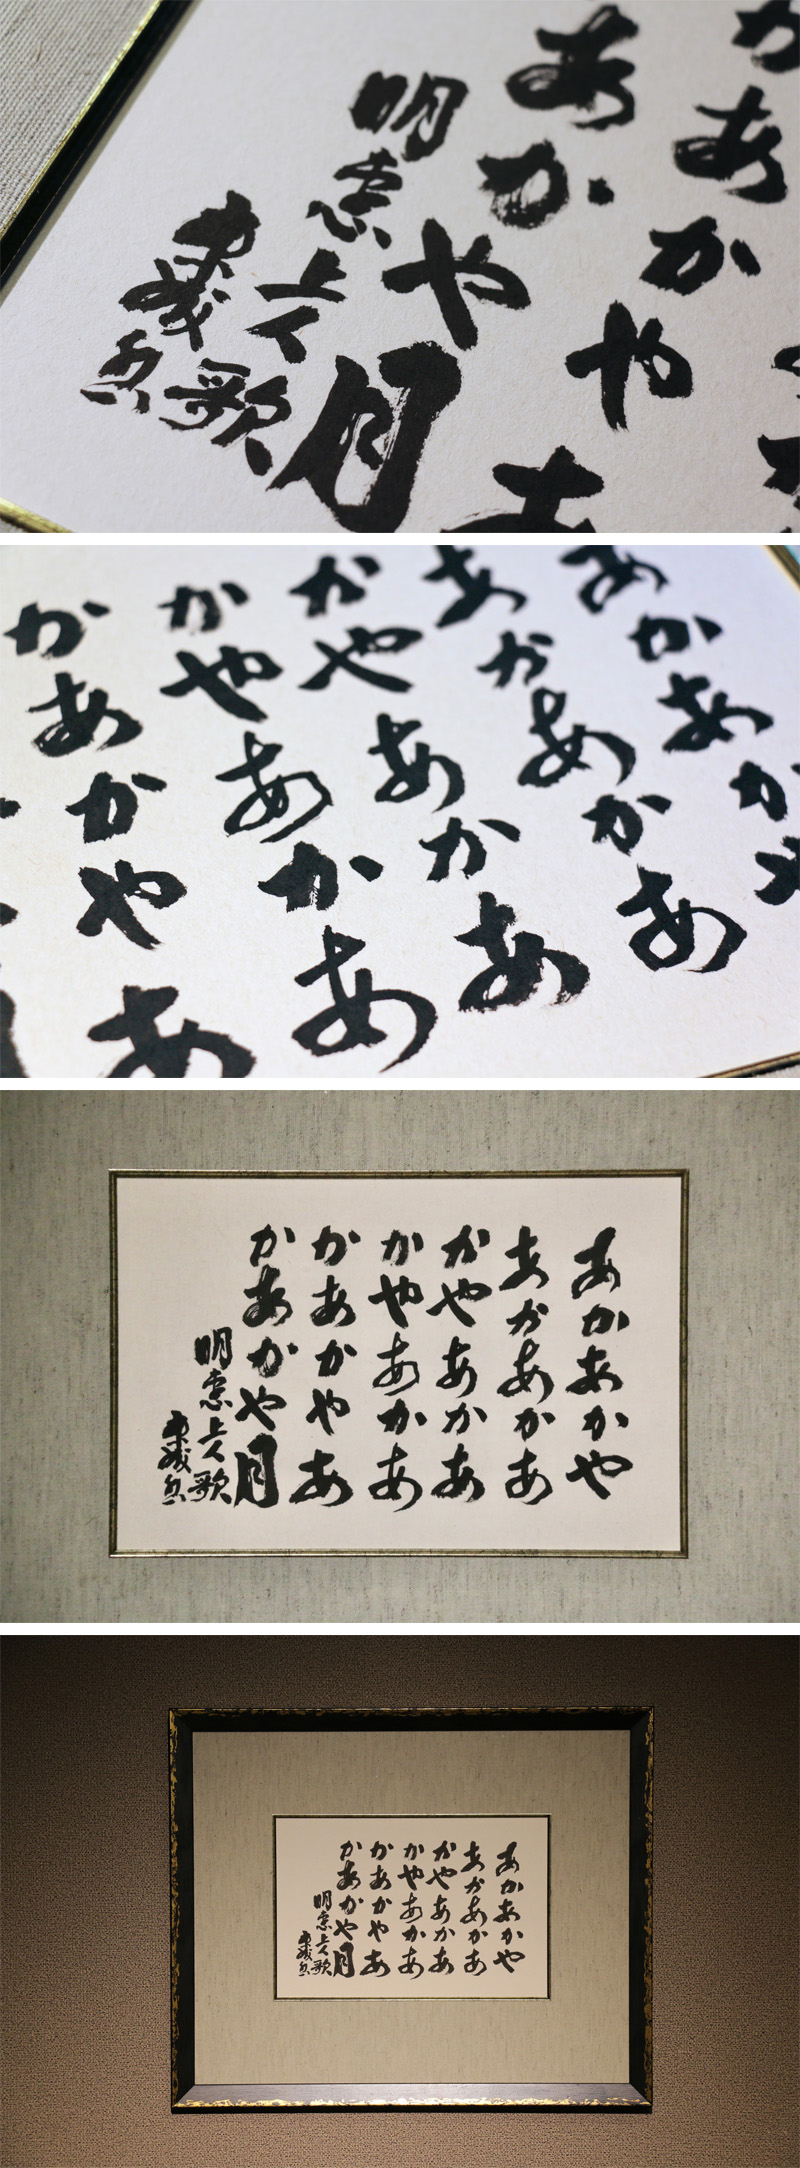 かあかやあ
あかや月
明恵上人歌
あかあかや
あかあかあ
かやあかあ
かやあかあ
かあかやあ
あかあかや
あかあかあ
かやあかあ
かやあかあ
かあかやあ
かあかや月
明恵上人歌
あかあかや
あかあかあ
かやあかあ
かやあかあ
かあかやあ
かあかや月
明恵上人歌